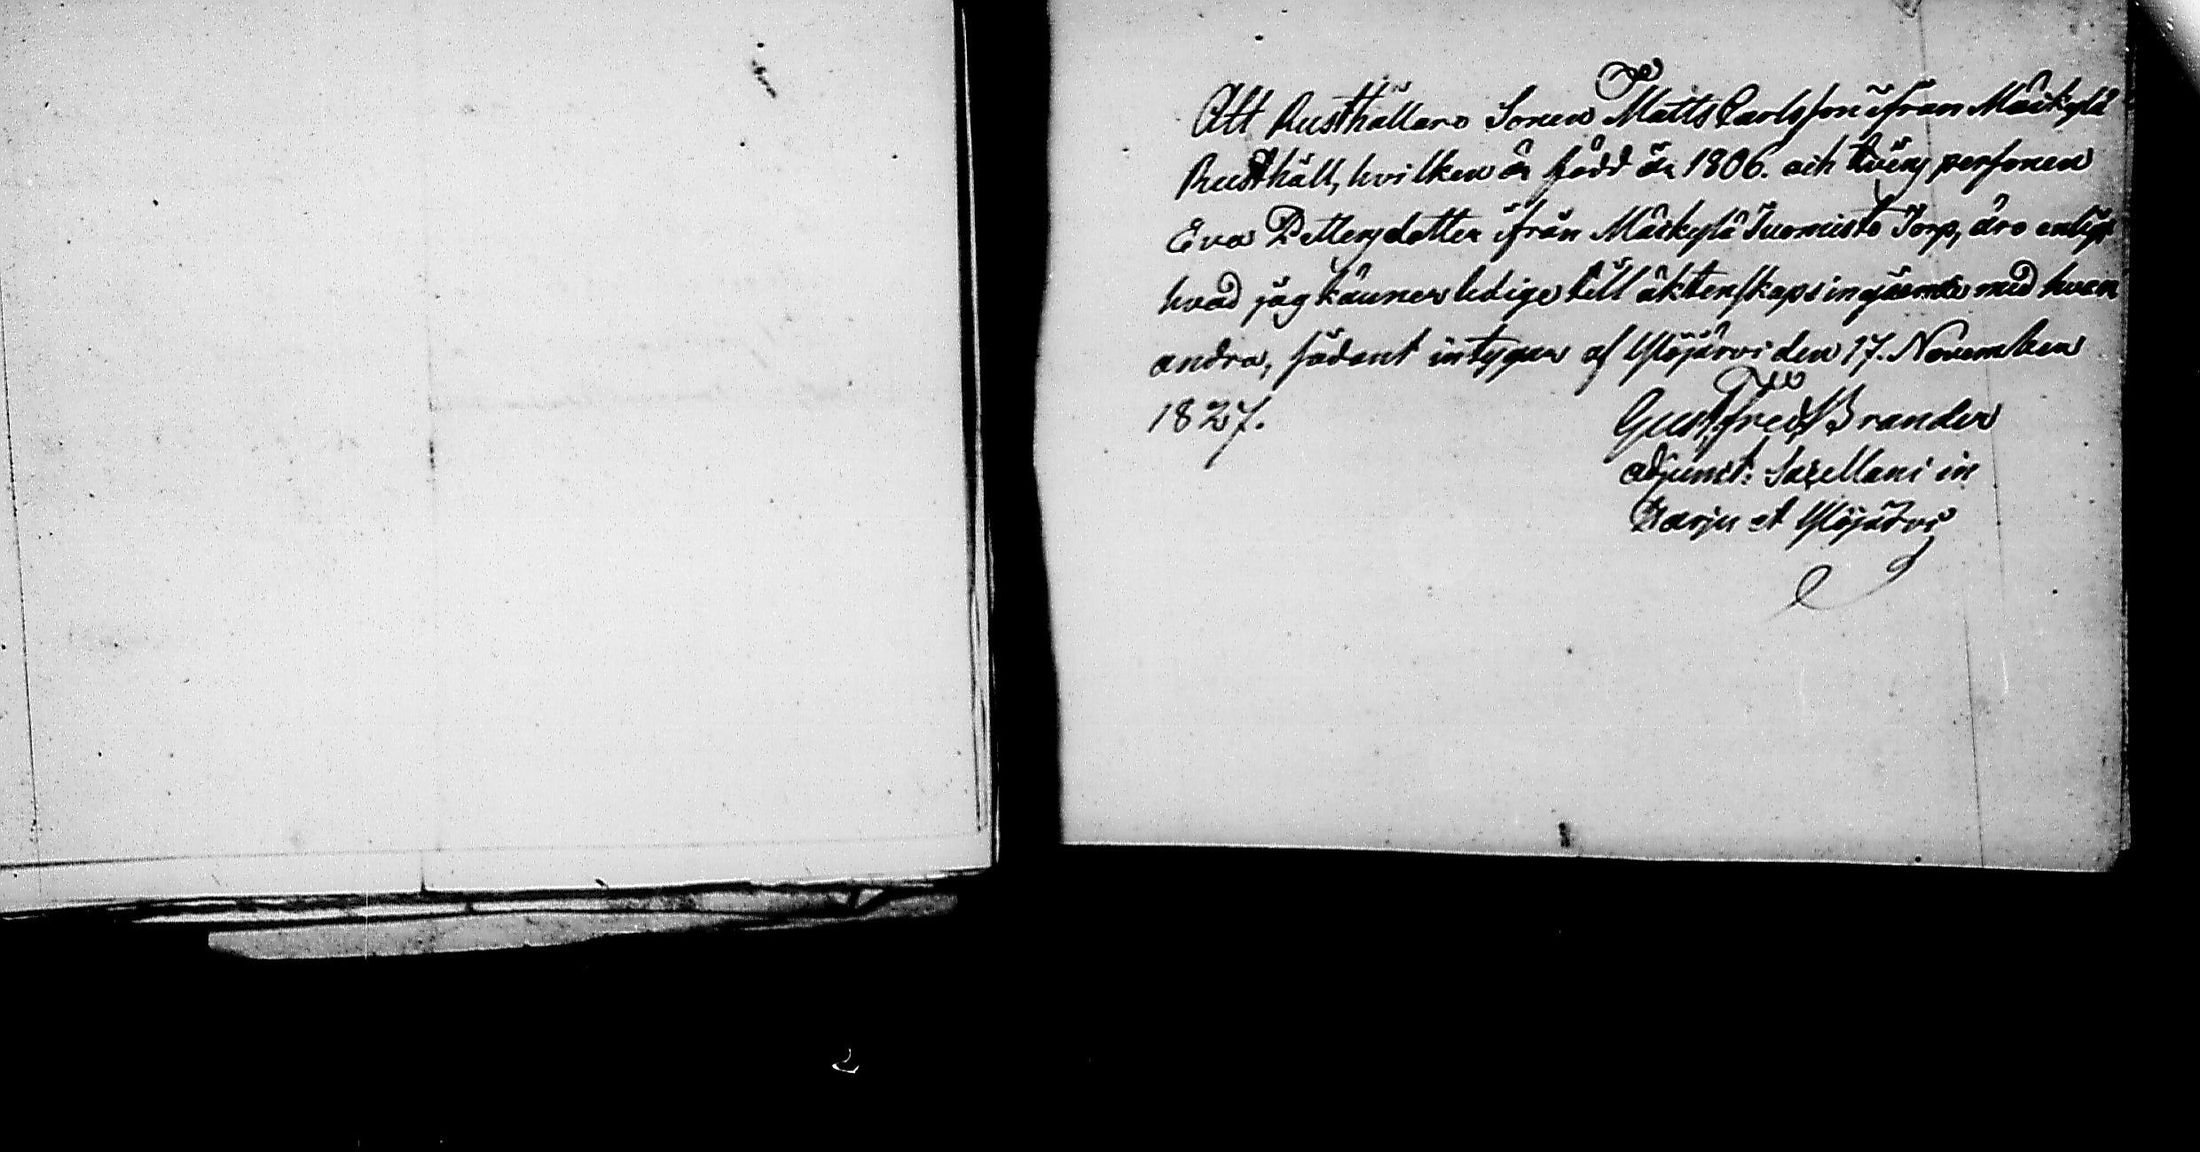 Att Rusthållare Sonen Matts Carlsson ifrån Mäkkylä
Rusthåll, hvilken är född år 1806. och qvins personen
Eva Pettersdotter ifrån Mäkkylä Tuomisto Torp, äro enligt
hvad jag känner ledige till äktenskaps ingående med hvar
andra, sådant intygar af Ylöjärvi den 17. November
1827.
Gust. Fred. Brander
adjunct: Sacellani in
Harju et Ylöjärvi